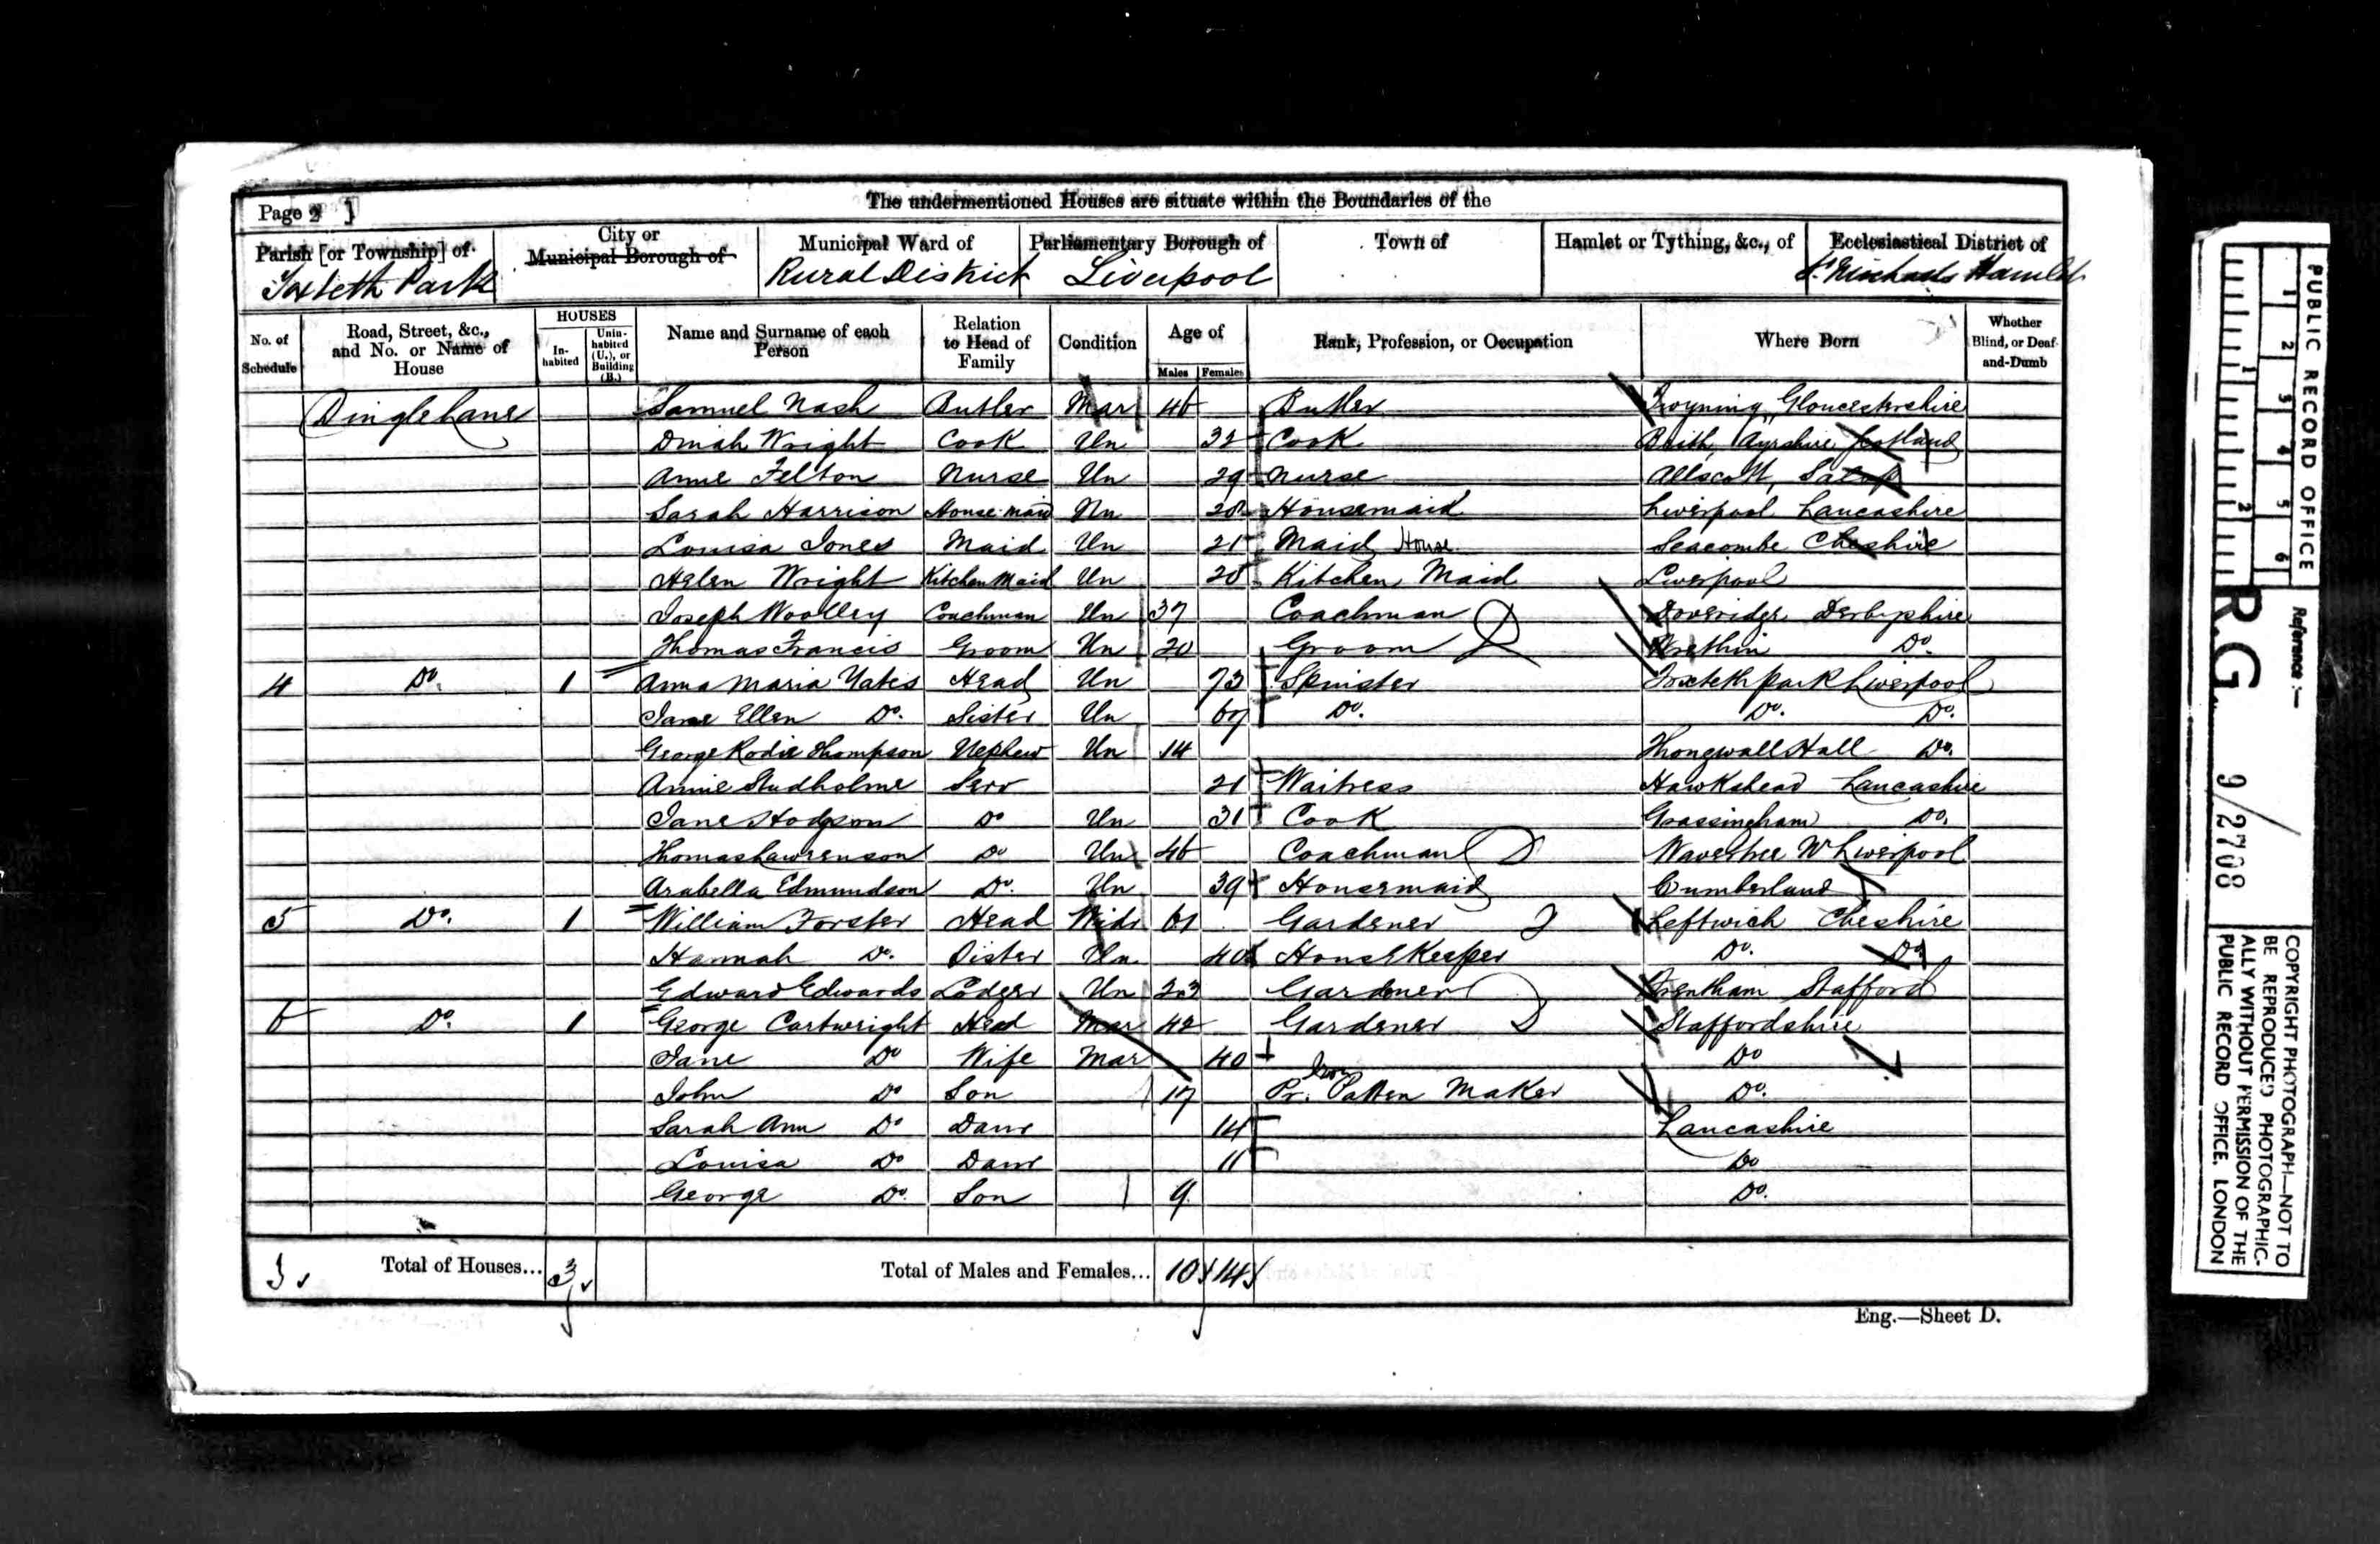 The undermentioned Houses are situate within the Boundaries of the
Page 2 ]
Parish [or Township] of Toxteth Park
City or Municipal Borough of
Municipal Ward of Rural District
Parliamentary Borough of Liverpool
Town of
Hamlet or Tything, &c., of
Ecclesiastical District of St. Michaels Hamlet
No. of Schedule
Road, Street, &c., and No. or Name of House
HOUSES
In-habited
Unin-habited (U.), or Building (B.)
Name and Surname of each Person
Relation to Head of Family
Condition
Age of
Males Females
Rank, Profession, or Occupation
Where Born
Whether Blind, or Deaf-and-Dumb
Dingle Lane Samuel Nash Butler Mar 46 Butler Twyning Gloucestershire
Dinah Wright Cook Un 32 Cook Beith, Ayrshire Scotland
Anne Felton Nurse Un 29 Nurse Allscott, Salop
Sarah Harrison House maid Un 28 Housemaid Liverpool Lancashire
Louisa Jones Maid Un 21 Maid House Seacombe Cheshire
Helen Wright Kitchen Maid Un 20 Kitchen Maid Liverpool
Joseph Woolley Coachman Un 37 Coachman D Doveridge Derbyshire
Thomas Francis Groom Un 20 Groom Do.
4 Do. 1 Anna Maria Yates Head Un 73 Spinster Toxteth Park Liverpool
Jane Ellen Do. Sister Un 67 Do. Do. Do.
George Rodie Thompson Nephew Un 14 Thongwall Hall Do.
Annie Studholme Serv 21 Waitress Hawkshead Lancashire
Jane Hodgson Do Un 31 Cook Do.
Thomas Lawrenson Do Un 46 Coachman D Wavertree Liverpool
Arabella Edmundson Do. Un 39 Housemaid Cumberland
5 Do. 1 William Forster Head Widr 61 Gardener Leftwich Cheshire
Hannah Do. Sister Un 40 House Keeper Do. Do.
Edward Edwards Lodger Un 23 Gardener Trentham Stafford
6 Do. 1 George Cartwright Head Mar 42 Gardener D Staffordshire
Jane Do Wife Mar 40 Do
John Do Son 17 Pr. Iron Patten Maker Do.
Sarah Ann Do Daur 14 Lancashire
Louisa Do Daur 11 Do
George Do. Son 9 Do.
3 Total of Houses... 3 Total of Males and Females... 10 14
Eng.—Sheet D.
PUBLIC RECORD OFFICE
1 2 3 4 5 6
1 2
Reference :—
R.G. 9/2708
COPYRIGHT PHOTOGRAPH—NOT TO
BE REPRODUCED PHOTOGRAPHIC-
ALLY WITHOUT PERMISSION OF THE
PUBLIC RECORD OFFICE, LONDON